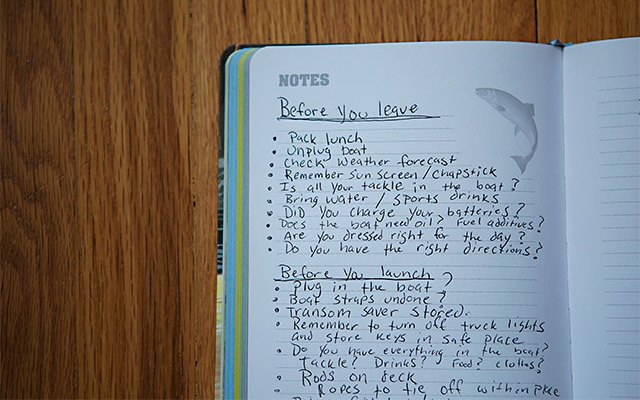 NOTES
Before you leave
• Pack lunch
• Unplug boat
• Check weather forecast
• Remember sun screen / chapstick
• Is all your tackle in the boat?
• Bring water / sports drinks
• Did you charge your batteries?
• Does the boat need oil? Fuel additives?
• Are you dressed right for the day?
• Do you have the right directions?
Before you launch?
• Plug in the boat
• Boat straps undone?
• Transom saver stored.
• Remember to turn off truck lights
and store keys in safe place
• Do you have everything in the boat?
Tackle? Drinks? Food? clothes?
• Rods on deck
• Ropes to tie off within